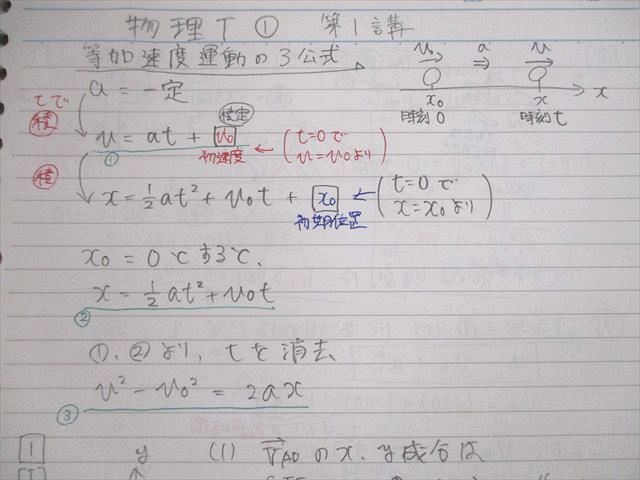 物理T ① 第1講
等加速度運動の3公式
v₀ a v
x₀ x x
時刻0 時刻t
a = 一定
tで
積
積
v = at + v₀ 積定
① 初速度 ← (t=0で v=v₀より)
x = 1/2 at² + v₀t + x₀ ← (t=0で x=x₀より)
初期位置
x₀ = 0とすると、
x = 1/2 at² + v₀t
②
①、②より、tを消去
v² - v₀² = 2ax
③
1 y (1) V⃗AD のx、y成分は